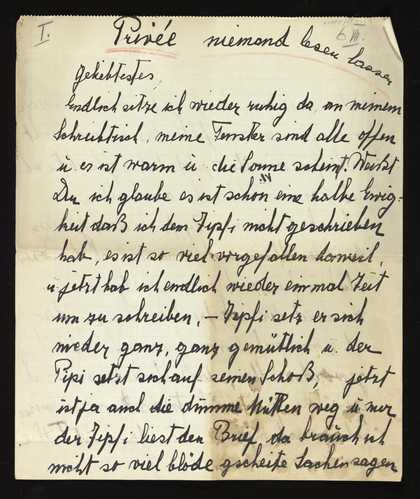 I. Privée niemand lesen lassen
geliebtestes,
Endlich sitze ich wieder ruhig da an meinem
Schreibtisch, meine Fenster sind alle offen
u es ist warm u die Sonne scheint. Weißt
Du ich glaube es ist schon eine halbe Ewig-
keit daß ich dem Zipfi nicht geschrieben
hab, es ist so viel vorgefallen derweil,
u jetzt hab ich endlich wieder einmal Zeit
um zu schreiben, – Zipfi setz er sich
nieder ganz, ganz gemütlich u. der
Pipi setzt sich auf seinen Schoß, jetzt
ist ja auch die dumme weg u nur
der Zipfi liest den Brief, da brauch ich
nicht so viel blöde gscheite Sachen sagen